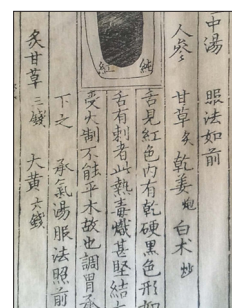 中湯 照法如前
人參 甘草炙 乾姜炮 白术炒
純
紅
舌見紅色內有乾硬黑色形
舌有刺者此熱毒熾甚堅結
受火制不能平木故也調胃承
下之 承氣湯服法照前
炙甘草三錢 大黃六錢